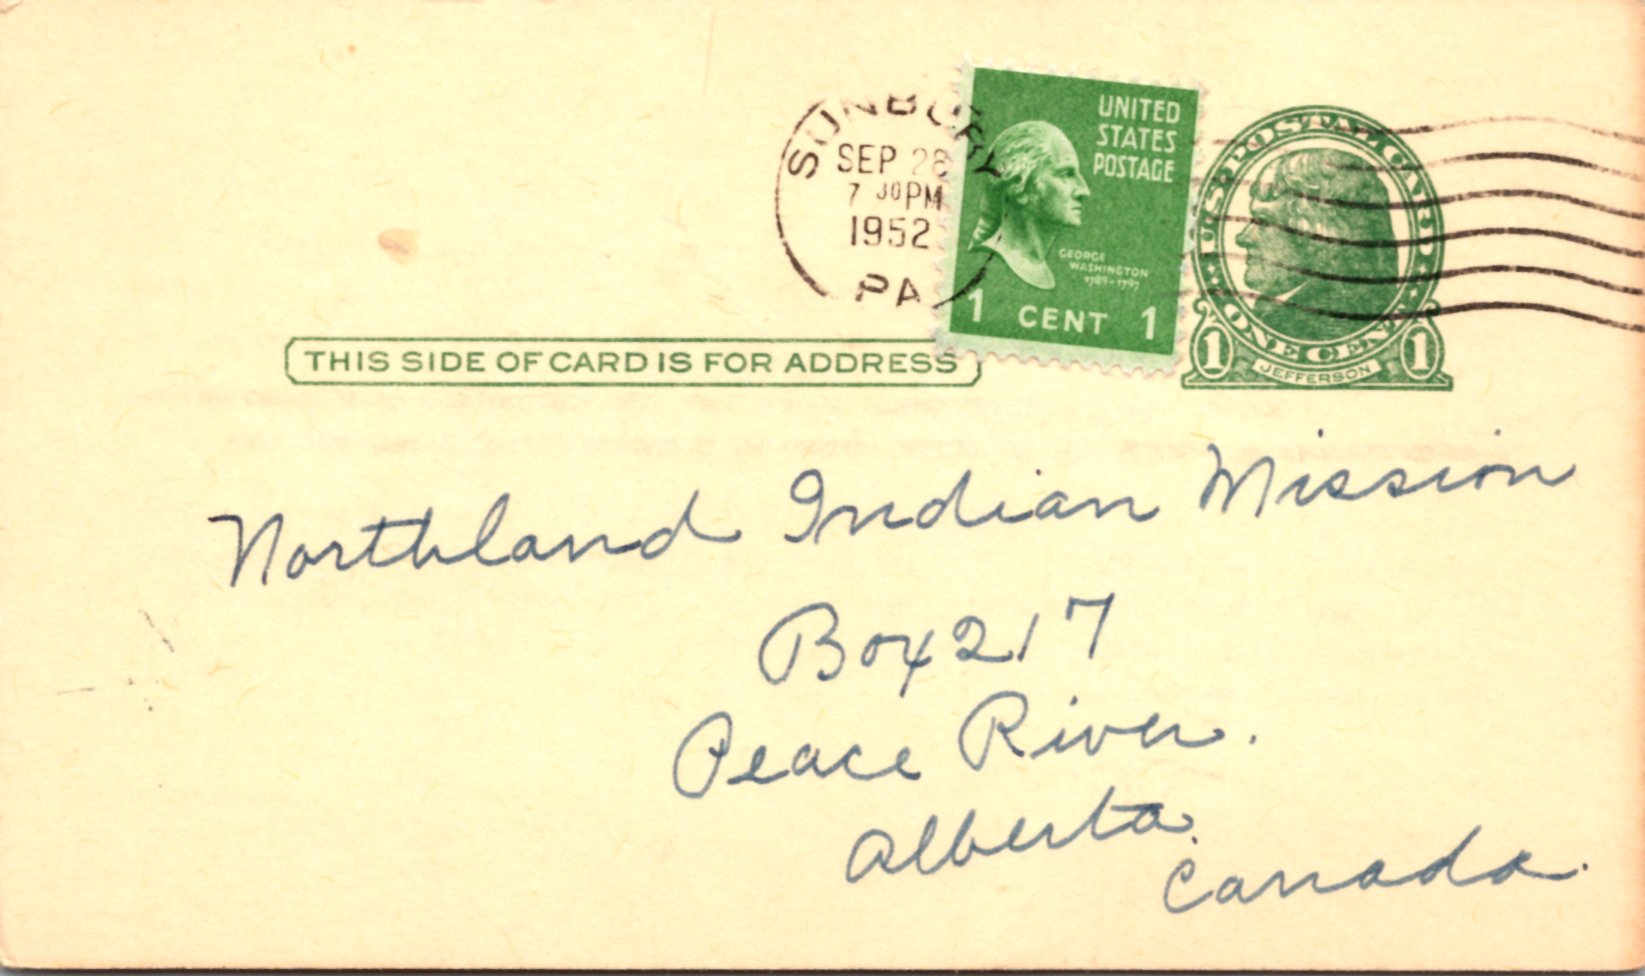 SUNBURY
SEP 28
7 30 PM
1952
PA
UNITED
STATES
POSTAGE
GEORGE
WASHINGTON
1789-1797
1 CENT 1
U.S. POSTAL CARD
1 ONE CENT 1
JEFFERSON
THIS SIDE OF CARD IS FOR ADDRESS
Northland Indian Mission
Box 217
Peace River.
Alberta.
Canada.